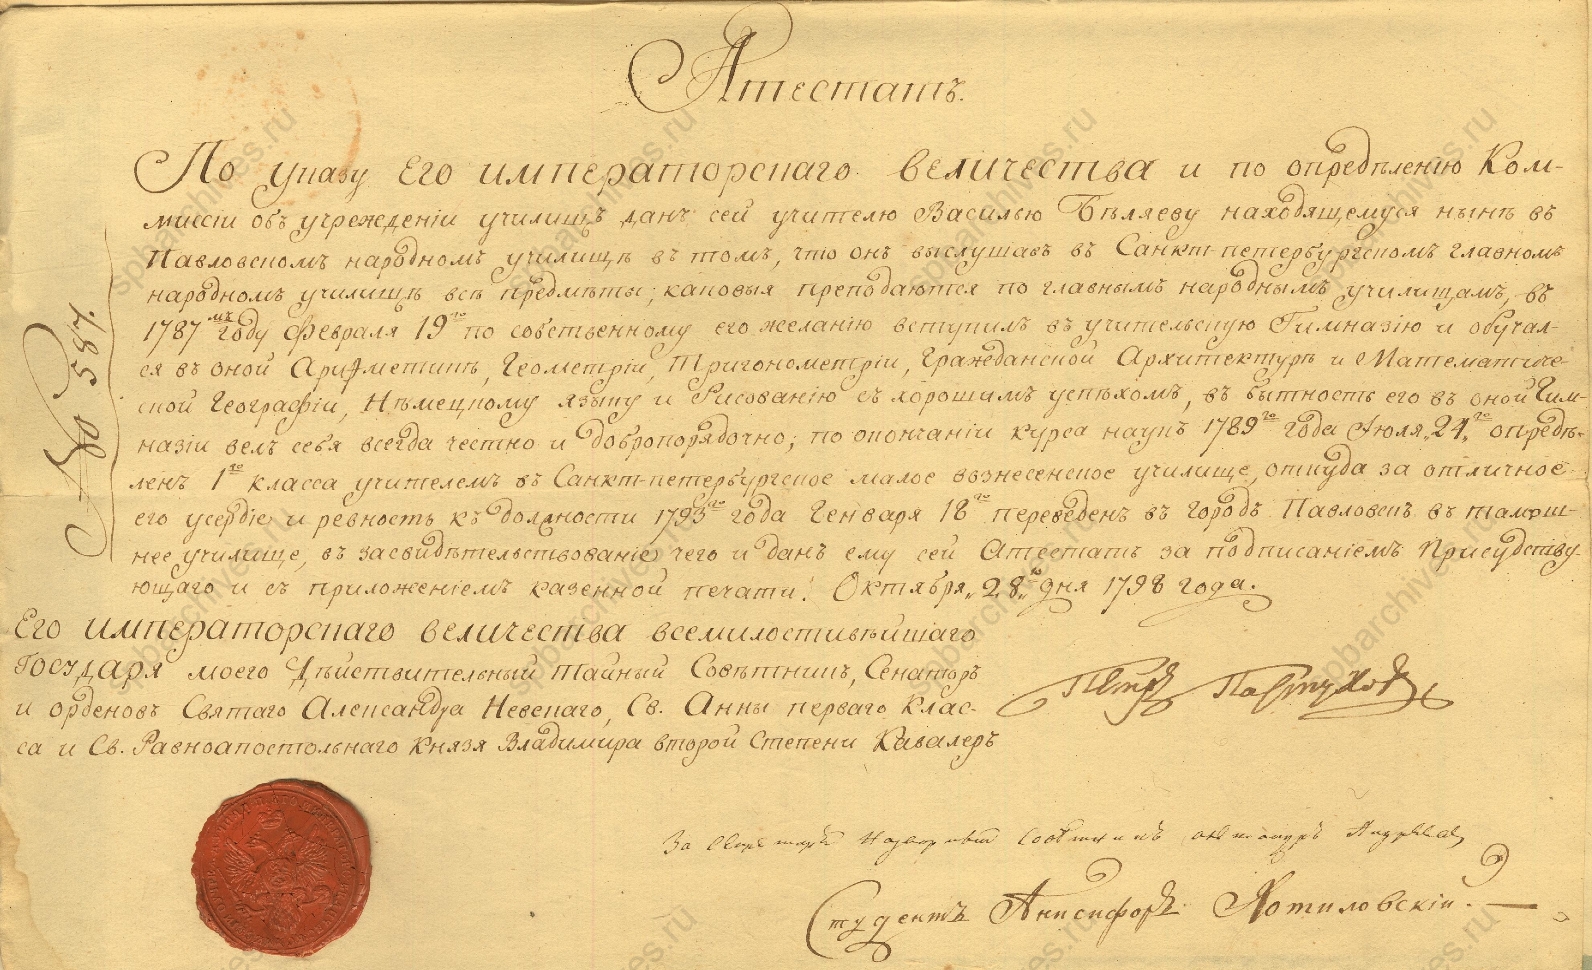 Аттестатъ.
По указу Его императорскаго величества и по опредѣленію Ком-
миссіи объ учрежденіи училищъ данъ сей учителю Василью Бѣляеву находящемуся нынѣ въ
Павловскомъ народномъ училищѣ въ томъ, что онъ выслушавъ въ Санкт-петербургскомъ главномъ
народномъ училищѣ всѣ предмѣты, каковыя преподаются по главнымъ народнымъ училищамъ, въ
1787мъ году Февраля 19го по собственному его желанію вступилъ въ учительскую Гимназію и обучал-
ся въ оной Арифметикѣ, Геометріи, Тригонометріи, Гражданской Архитектурѣ и Математиче-
ской Географіи, Нѣмецкому языку и Рисованію съ хорошимъ успѣхомъ, въ бытность его въ оной Гим-
назіи велъ себя всегда честно и добропорядочно; по окончаніи курса наукъ 1789го года Іюля „24„го опредѣ-
ленъ 1го класса учителемъ въ Санкт-петербургское малое вознесенское училище, откуда за отличное
его усердіе и ревность къ должности 1793го года Генваря 18го переведенъ въ городъ Павловскъ въ тамош-
нее училище, въ засвидѣтельствованіе чего и данъ ему сей Атестатъ за подписаніемъ Присудству-
ющаго и съ приложеніемъ казенной печати! Октября „28„го дня 1798 года.
№ 587.
Его императорскаго величества всемилостивѣйшаго
Государя моего Дѣйствительный Тайный Совѣтникъ, Сенаторъ
и орденовъ Святаго Александра Невскаго, Св. Анны перваго клас-
са и Св. Равноапостольнаго князя Владимира второй степени Кавалеръ
Петръ Пастуховъ
За Секретаря Надворный Совѣтникъ
Студентъ Анисифоръ Котиловскій.
spbarchives.ru